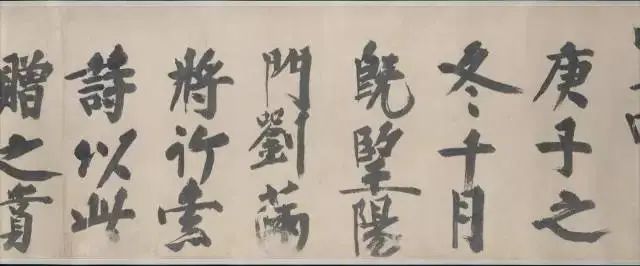 庚子之
冬十月
既望陽
門劉滿
將行索
詩以此
贈之賞